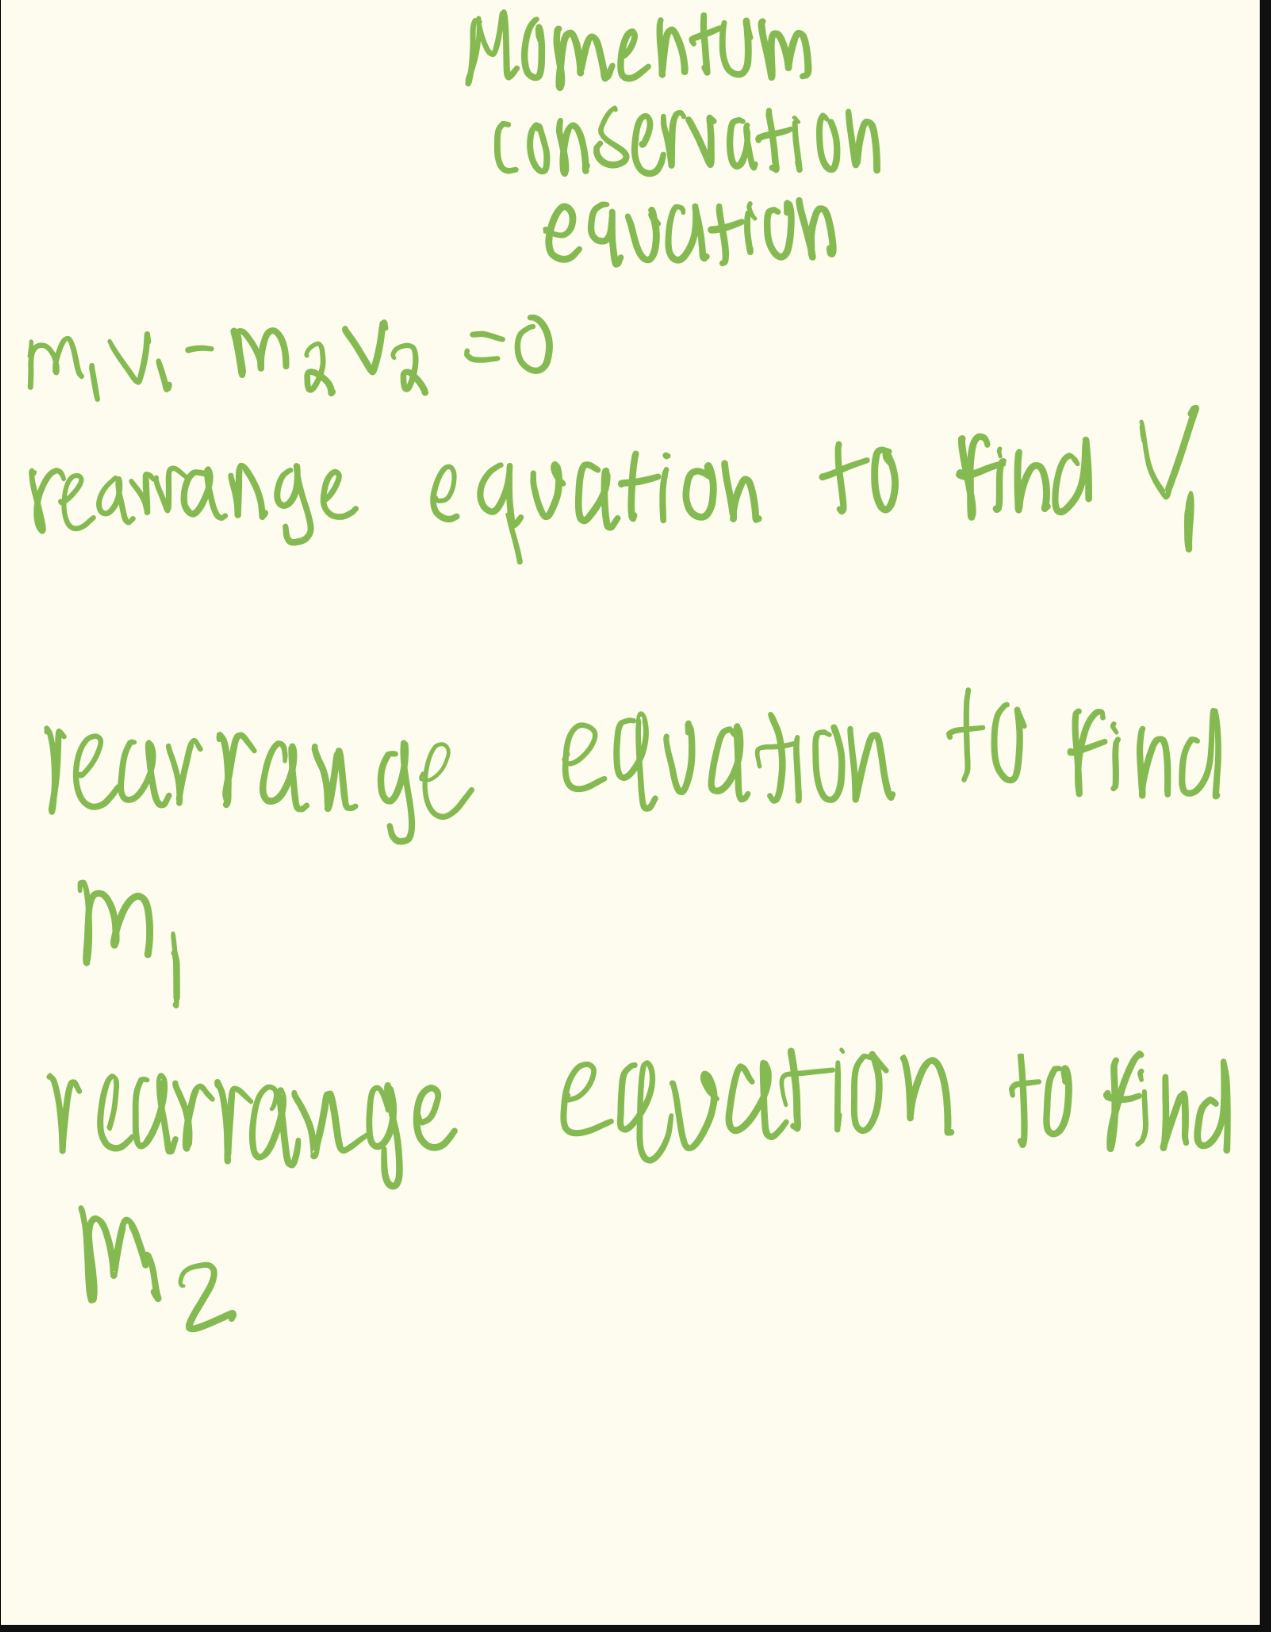 Momentum
conservation
equation
m₁v₁-m₂v₂=0
rearrange equation to find V₁
rearrange equation to find
m₁
rearrange equation to find
m₂